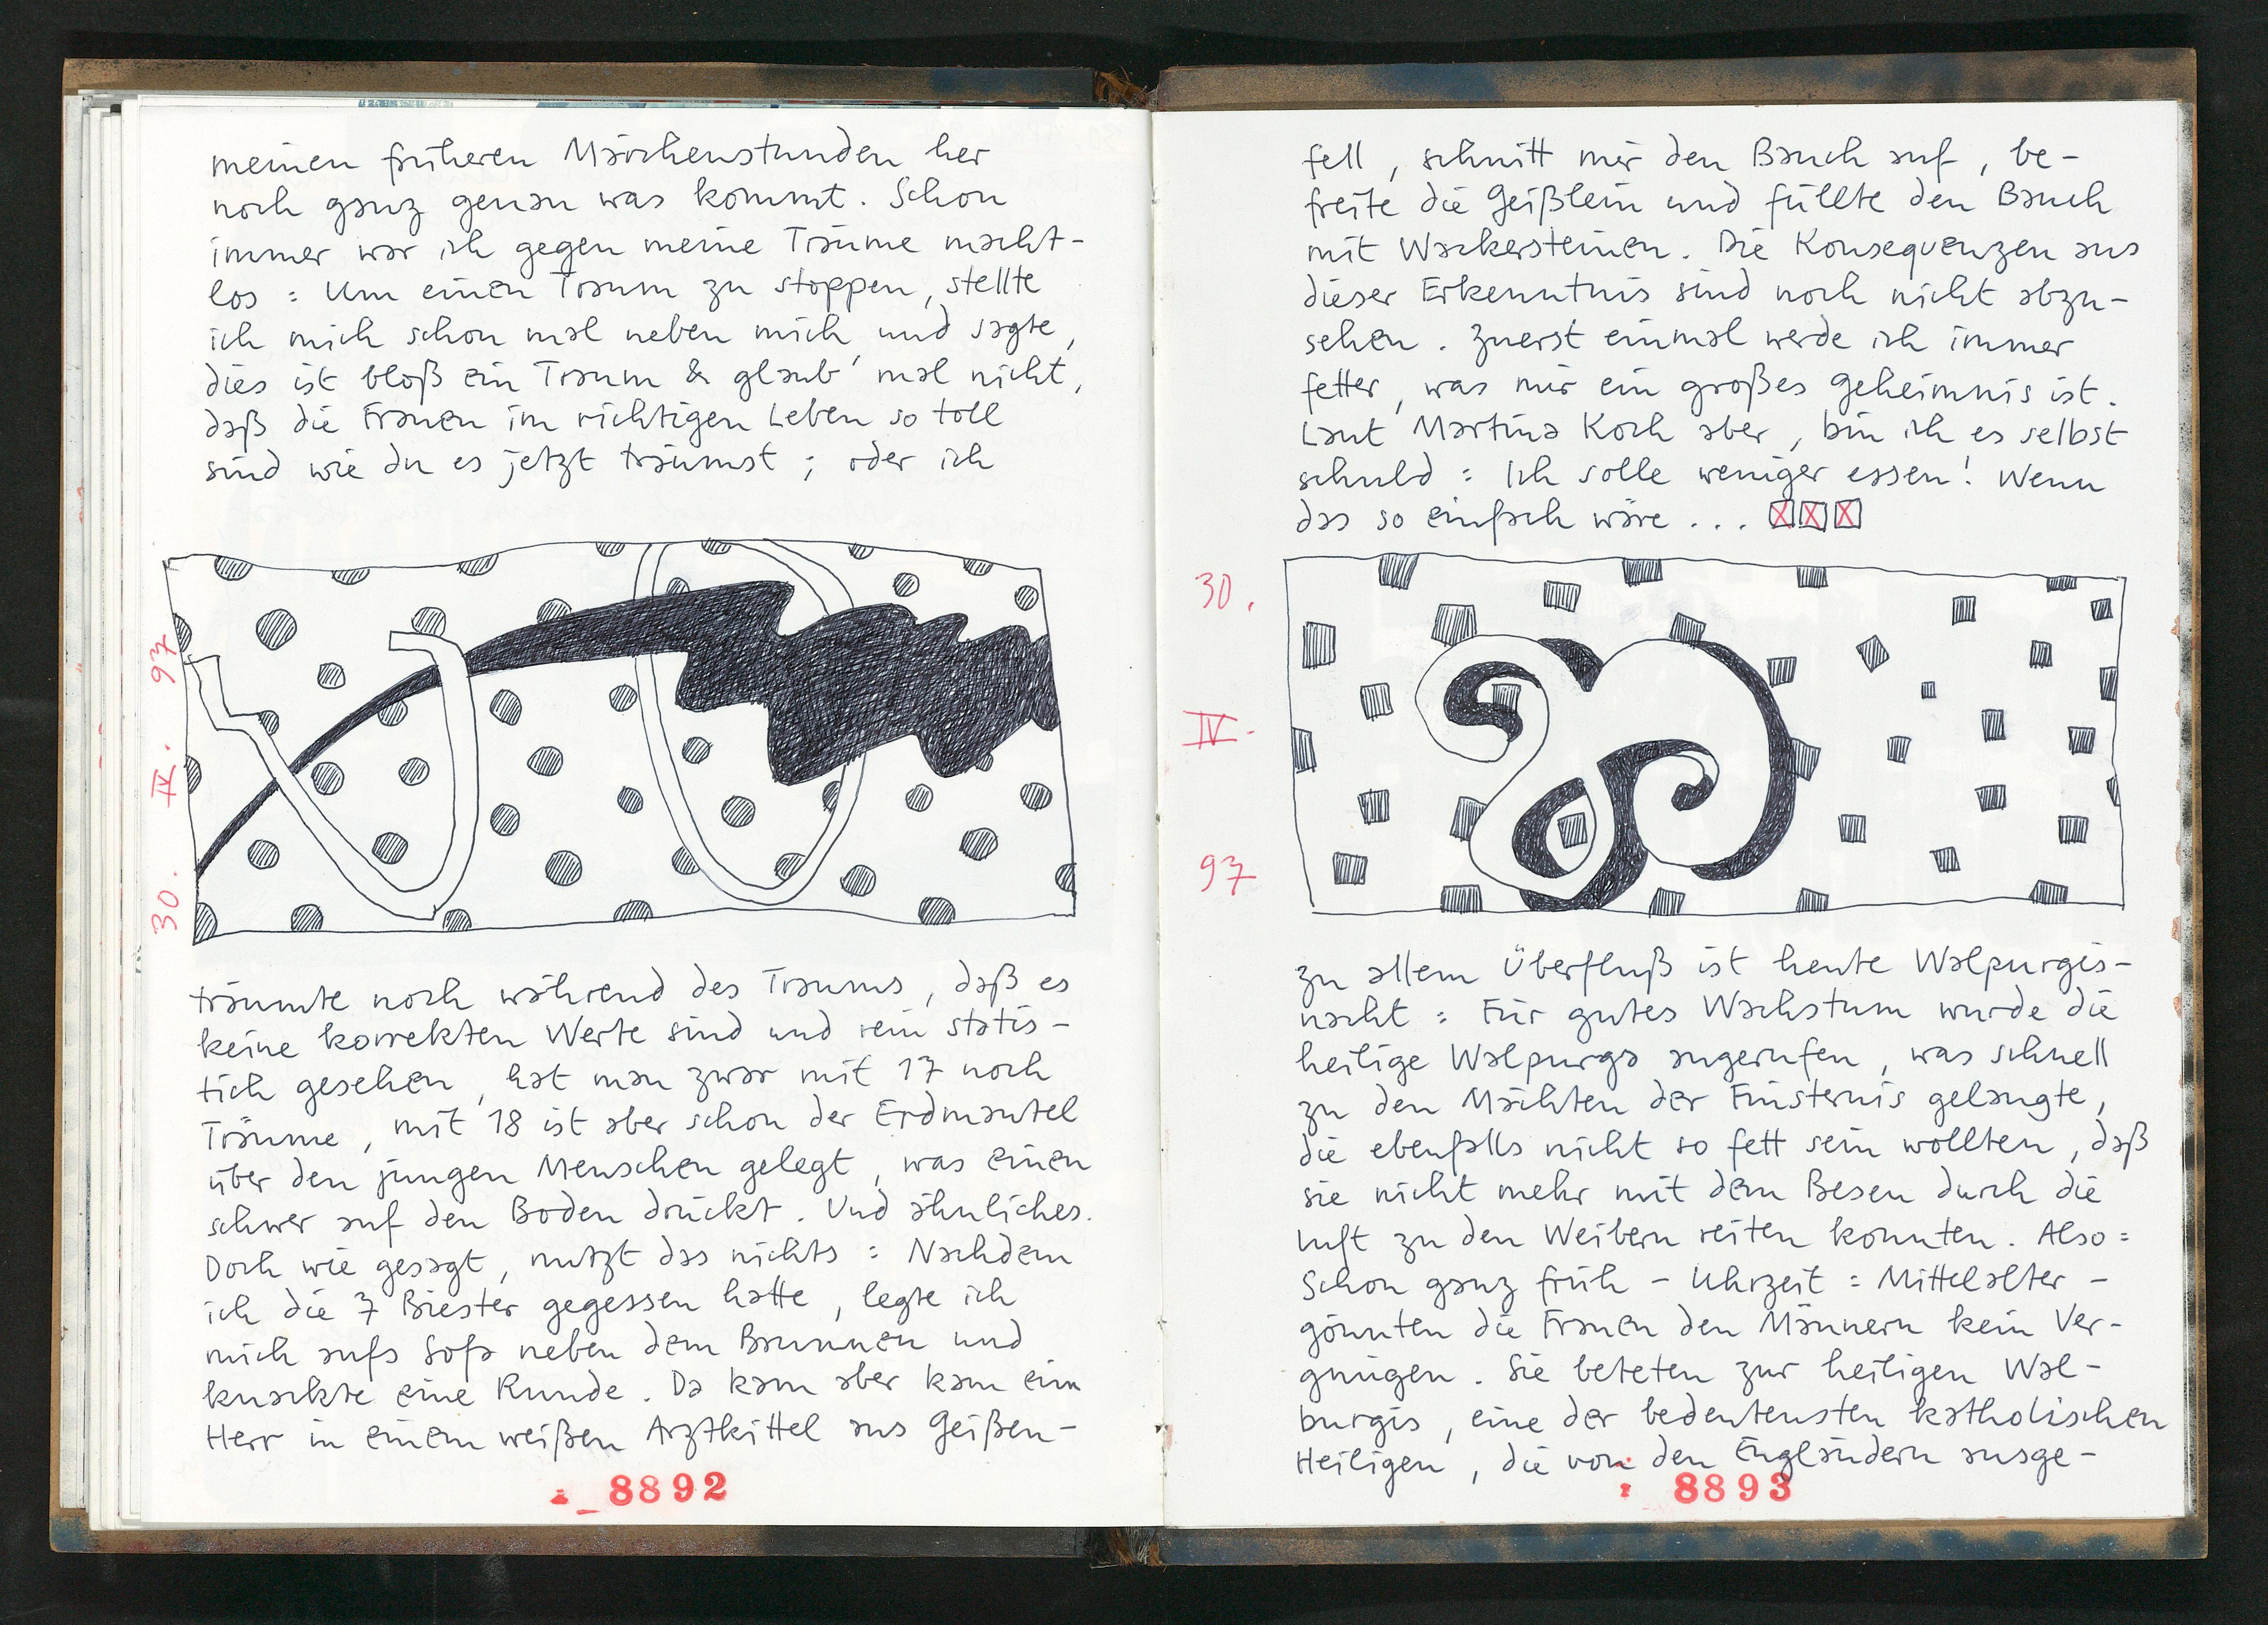 meinen früheren Märchenstunden her
noch ganz genau was kommt. Schon
immer war ich gegen meine Träume macht-
los : Um einen Traum zu stoppen, stellte
ich mich schon mal neben mich und sagte,
dies ist bloß ein Traum & glaub' mal nicht,
daß die Frauen im richtigen Leben so toll
sind wie du es jetzt träumst ; oder ich
30. IV. 97
träumte noch während des Traums, daß es
keine korrekten Werte sind und rein statis-
tich gesehen, hat man zwar mit 17 noch
Träume, mit 18 ist aber schon der Erdmantel
über den jungen Menschen gelegt, was einen
schwer auf den Boden drückt. Und ähnliches.
Doch wie gesagt, nutzt das nichts : Nachdem
ich die 7 Biester gegessen hatte, legte ich
mich aufs Sofa neben dem Brunnen und
knackte eine Runde. Da kam aber kam ein
Herr in einem weißen Arztkittel aus Geißen-
8892
fell, schnitt mir den Bauch auf, be-
freite die Geißlein und füllte den Bauch
mit Wackersteinen. Die Konsequenzen aus
dieser Erkenntnis sind noch nicht abzu-
sehen. Zuerst einmal werde ich immer
fetter, was mir ein großes Geheimnis ist.
Laut Martina Koch aber, bin ich es selbst
schuld : Ich solle weniger essen! Wenn
das so einfach wäre ... XXX
30.
IV.
97
zu allem Überfluß ist heute Walpurgis-
nacht : Für gutes Wachstum wurde die
heilige Walpurga angerufen, was schnell
zu den Mächten der Finsternis gelangte,
die ebenfalls nicht so fett sein wollten, daß
sie nicht mehr mit dem Besen durch die
Luft zu den Weibern reiten konnten. Also :
Schon ganz früh - Uhrzeit : Mittelalter -
gönnten die Frauen den Männern kein Ver-
gnügen. Sie beteten zur heiligen Wal-
burgis, eine der bedeutensten katholischen
Heiligen, die von den Engländern ausge-
8893